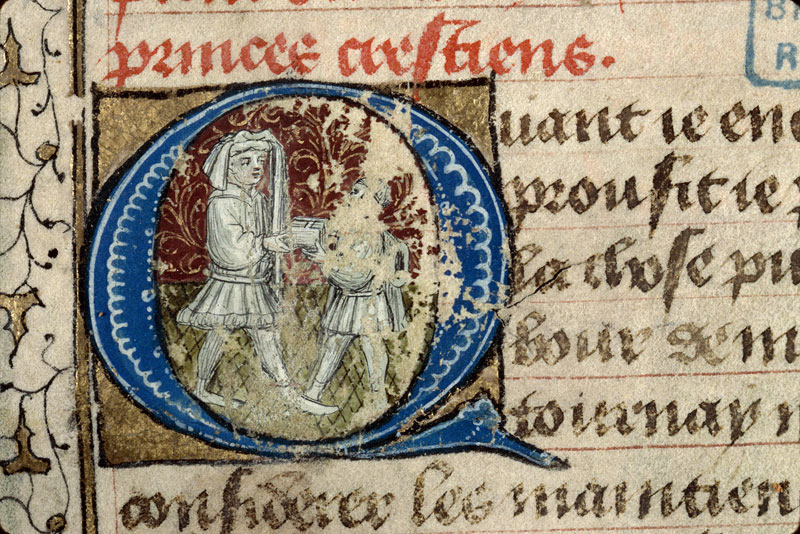 princes crestiens.
BI
R
Quant ie en
prouffit ie
la chose pu
bour de m
tournay
considerer les maintien